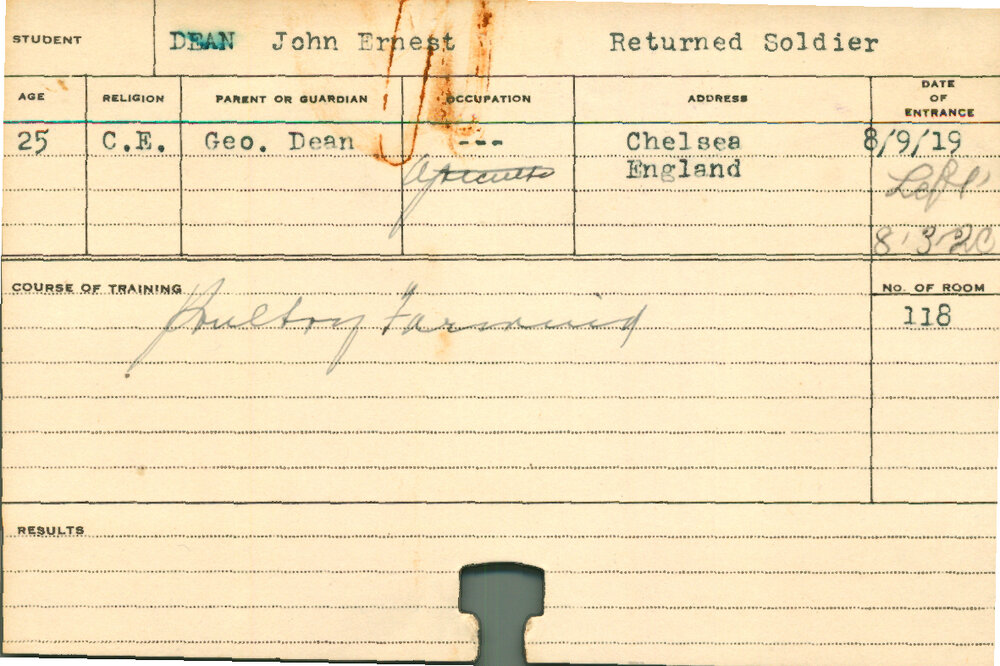 STUDENT DEAN John Ernest Returned Soldier
AGE RELIGION PARENT OR GUARDIAN OCCUPATION ADDRESS DATE OF ENTRANCE
25 C.E. Geo. Dean --- Chelsea 8/9/19
England Left
8.3.20
COURSE OF TRAINING Poultry Farming No. OF ROOM
118
RESULTS